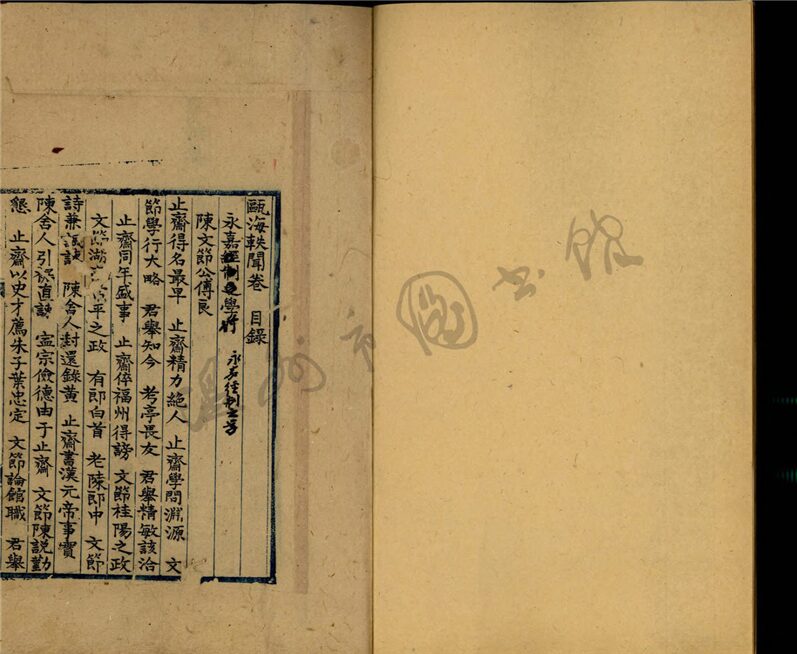 甌海軼聞卷 目錄
永嘉經制之學 永嘉經制之学
陳文節公傅良
止齋得名最早 止齋精力絕人 止齋學問淵源 文
節學行大略 君舉知今 考亭畏友 君舉精敏該洽
止齋同年盛事 止齋倅福州得謗 文節桂陽之政
文節湖 平之政 有郎白首 老陳郎中 文節
詩兼 諫 陳舍人封還錄黃 止齋書漢元帝事實
陳舍人引裾直諫 寧宗儉德由于止齋 文節陳說勤
懇 止齋以史才薦朱子葉忠定 文節論館職 君舉
溫州市圖書館